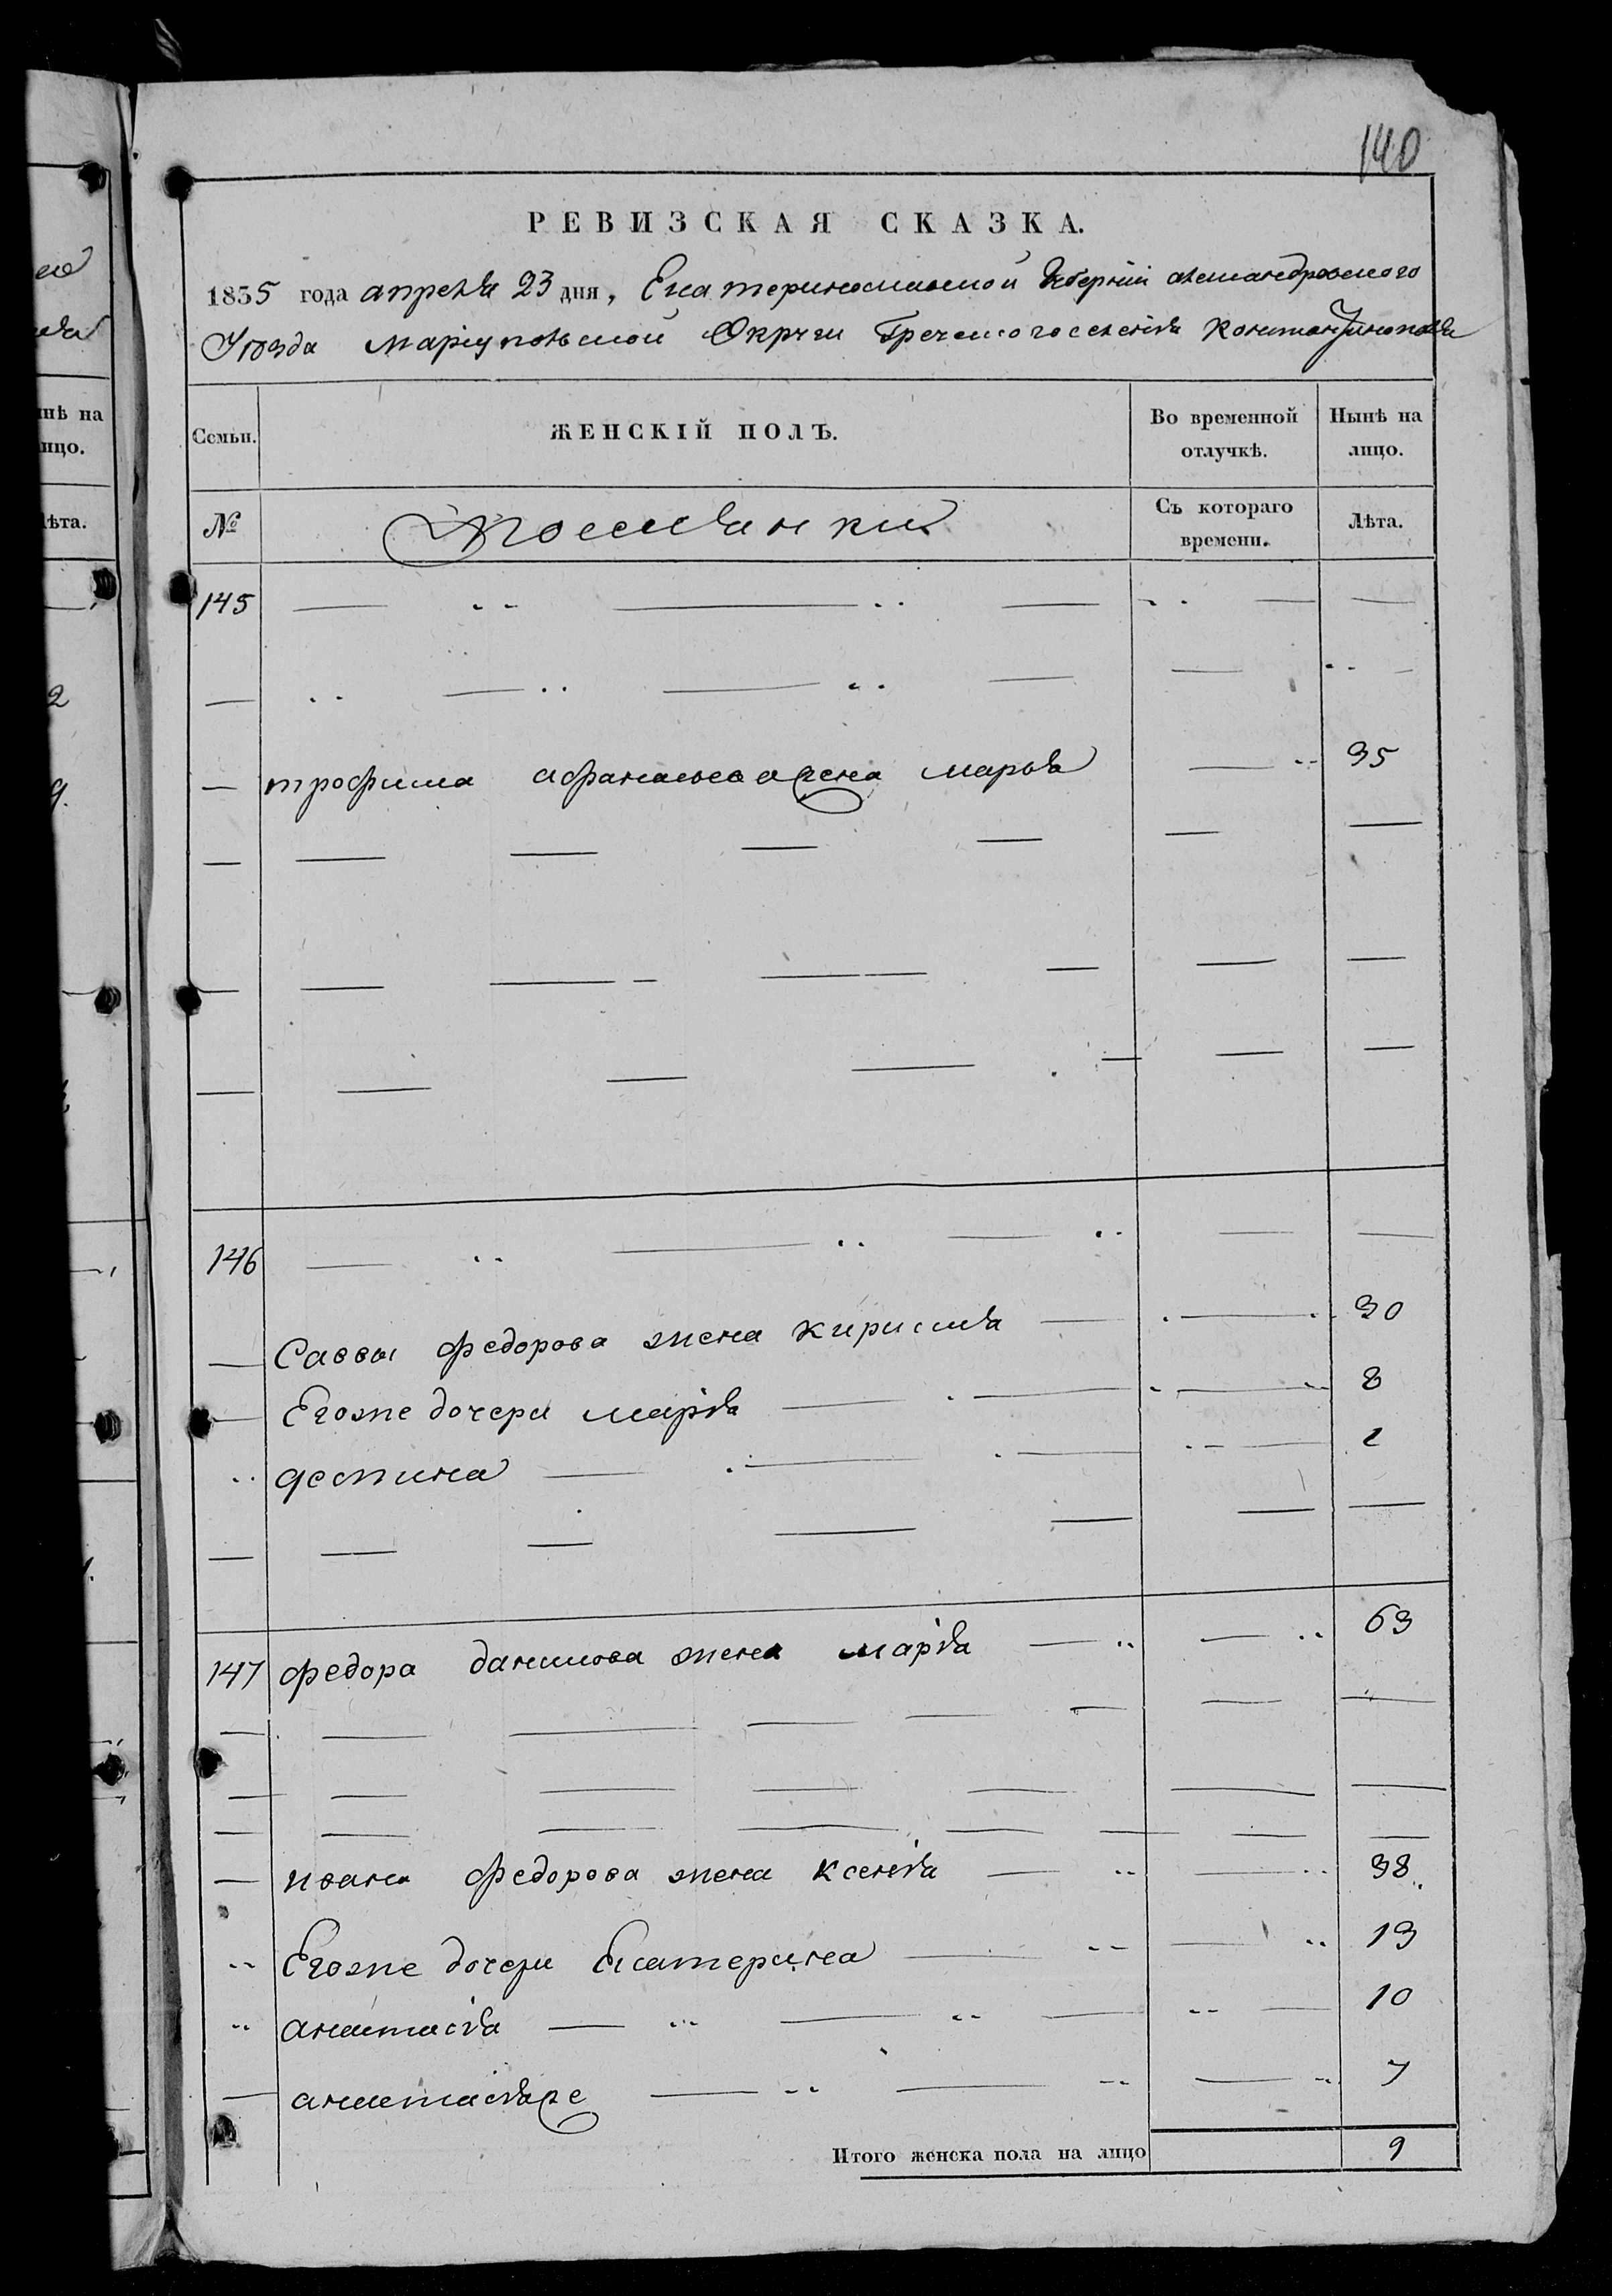 140
РЕВИЗСКАЯ СКАЗКА.
1835 года апреля 23 дня, Екатеринославской Губерніи александровского
Уюзда маріупольской Округи Греческого селенія Константинополя
Семьи. ЖЕНСКІЙ ПОЛЪ. Во временной отлучкѣ. Нынѣ на лицо.
№ поселянки Съ котораго времени. Лѣта.
145
трофима афанасьева жена марья 35
146
Саввы федорова жена кирисия 30
Егоже дочери марія 8
деспина 2
147 федора данилова жена марія 63
ивана федорова жена ксенія 38
Егоже дочери Екатерина 13
анастасія 10
анастасія же 7
Итого женска пола на лицо 9
нѣ на
ицо.
ѣта.
2